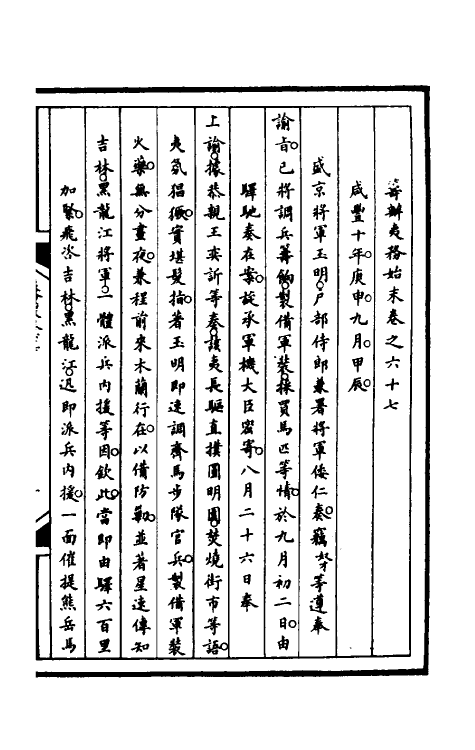 籌辦夷務始末卷之六十七
咸豐十年庚申九月甲辰
盛京將軍玉明戶部侍郎兼署將軍倭仁奏竊奴才等遵奉
諭旨已將調兵籌餉製備軍裝採買馬匹等情於九月初二日由
驛馳奏在案茲承軍機大臣密寄八月二十六日奉
上諭據恭親王奕訢等奏該夷長驅直撲圓明園焚燒街市等語
夷氛猖獗實堪髮指著玉明即速調齊馬步隊官兵製備軍裝
火藥無分晝夜兼程前來木蘭行在以備防勦並著星速傳知
吉林黑龍江將軍一體派兵內援等因欽此當即由驛六百里
加緊飛咨吉林黑龍江迅即派兵內援一面催提熊岳馬